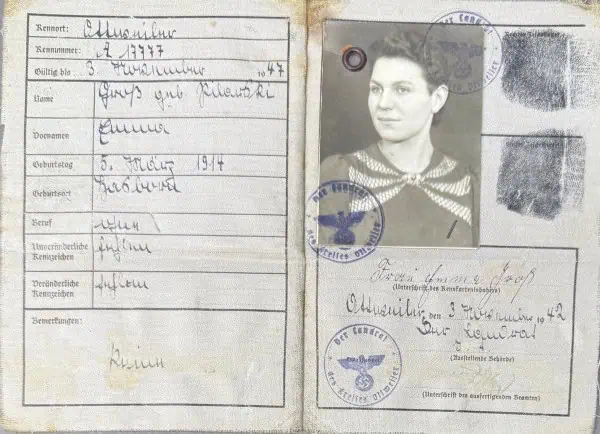 Kennort: Ottweiler
Kennummer: A 17777
Gültig bis 3. November 1947
Name Groß geb.
Vornamen Emma
Geburtstag 5. März 1914
Geburtsort
Beruf
Unveränderliche Kennzeichen fehlen
Veränderliche Kennzeichen fehlen
Bemerkungen:
Keine
Der Landrat
des Kreises Ottweiler
Frau Emma Groß
(Unterschrift des Kennkarteninhabers)
Ottweiler, den 3. November 1942
Der Landrat
(Ausstellende Behörde)
(Unterschrift des ausfertigenden Beamten)
Der Landrat
des Kreises Ottweiler